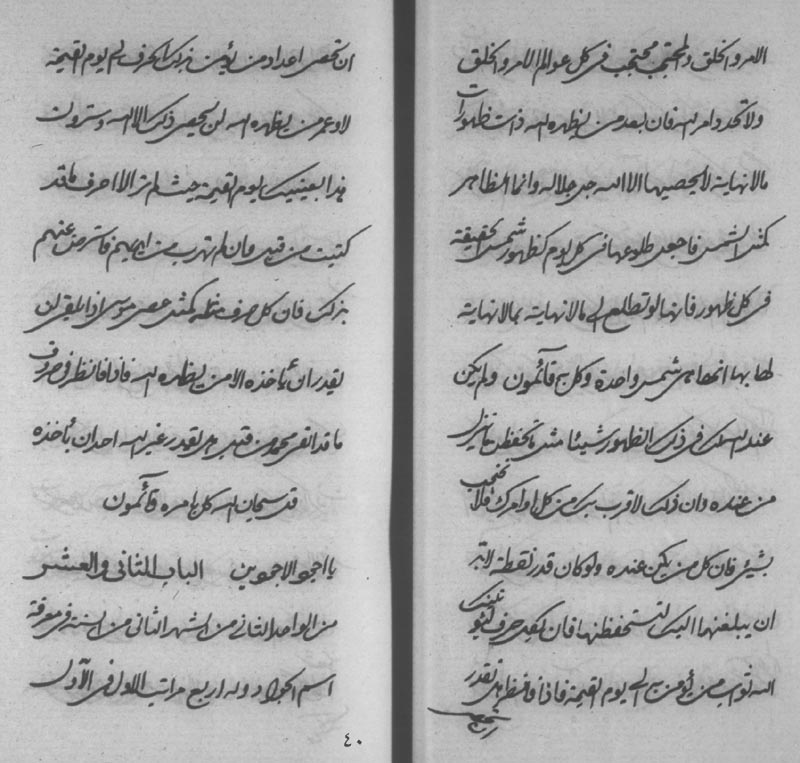 الامر والخلق والمحتجب محتجب في كل عوالم الامر والخلق
ولا تحدد امر الله فان بعد من يظهره الله ذات ظهورات
مالانهاية لا يحصيها الا الله جل جلاله وانما الظاهر
كمثل الشمس فاجعل طلوعها في كل يوم كظهور شمس الحقيقة
في كل ظهور فانها لو تطلع الى مالانهاية بمالانهاية
لها بها انها هي شمس واحدة وكل به قائمون ولم يكن
عند الله لك في ذلك الظهور شيئا مثل ما تحفظن ما ينزل
من عنده وان ذلك لاقرب بك من كل اوامرك فلا تحتجب
بشيئ فان كل من يكن عنده ولو كان قدر نقطة لابد
ان يبلغنها اليك لتستحفظنها فان لكل حرف
الله ثواب من يؤمن به الى يوم القيمة فاذا فانظر هل تقدر
ان تحصي اعداد من يؤمن بذلك الحرف الى يوم القيمة
لا وعمر من يظهره الله لن يحصي ذلك الا الله وسترون
هذا بعينيك يوم القيمة حيث لم تر الا احرف ما قد
كتبت من قبل وان لم تهرب من ايديهم فاسترض عنهم
بذلك فان كل حرف منه كمثل عصى موسى اذا يلقى لن
يقدر ان يأخذه الا من يظهره الله فاذا فانظر في حروف
ما قد القى محمد من قبل هل يقدر غير الله احد ان يأخذه
قل سبحان الله كل بامره قائمون
يا اجود الاجودين الباب الثاني والعشر
من الواحد الثاني من الشهر الثاني من السنة في معرفة
اسم الجواد وله اربع مراتب الاول في الاول
٤٠